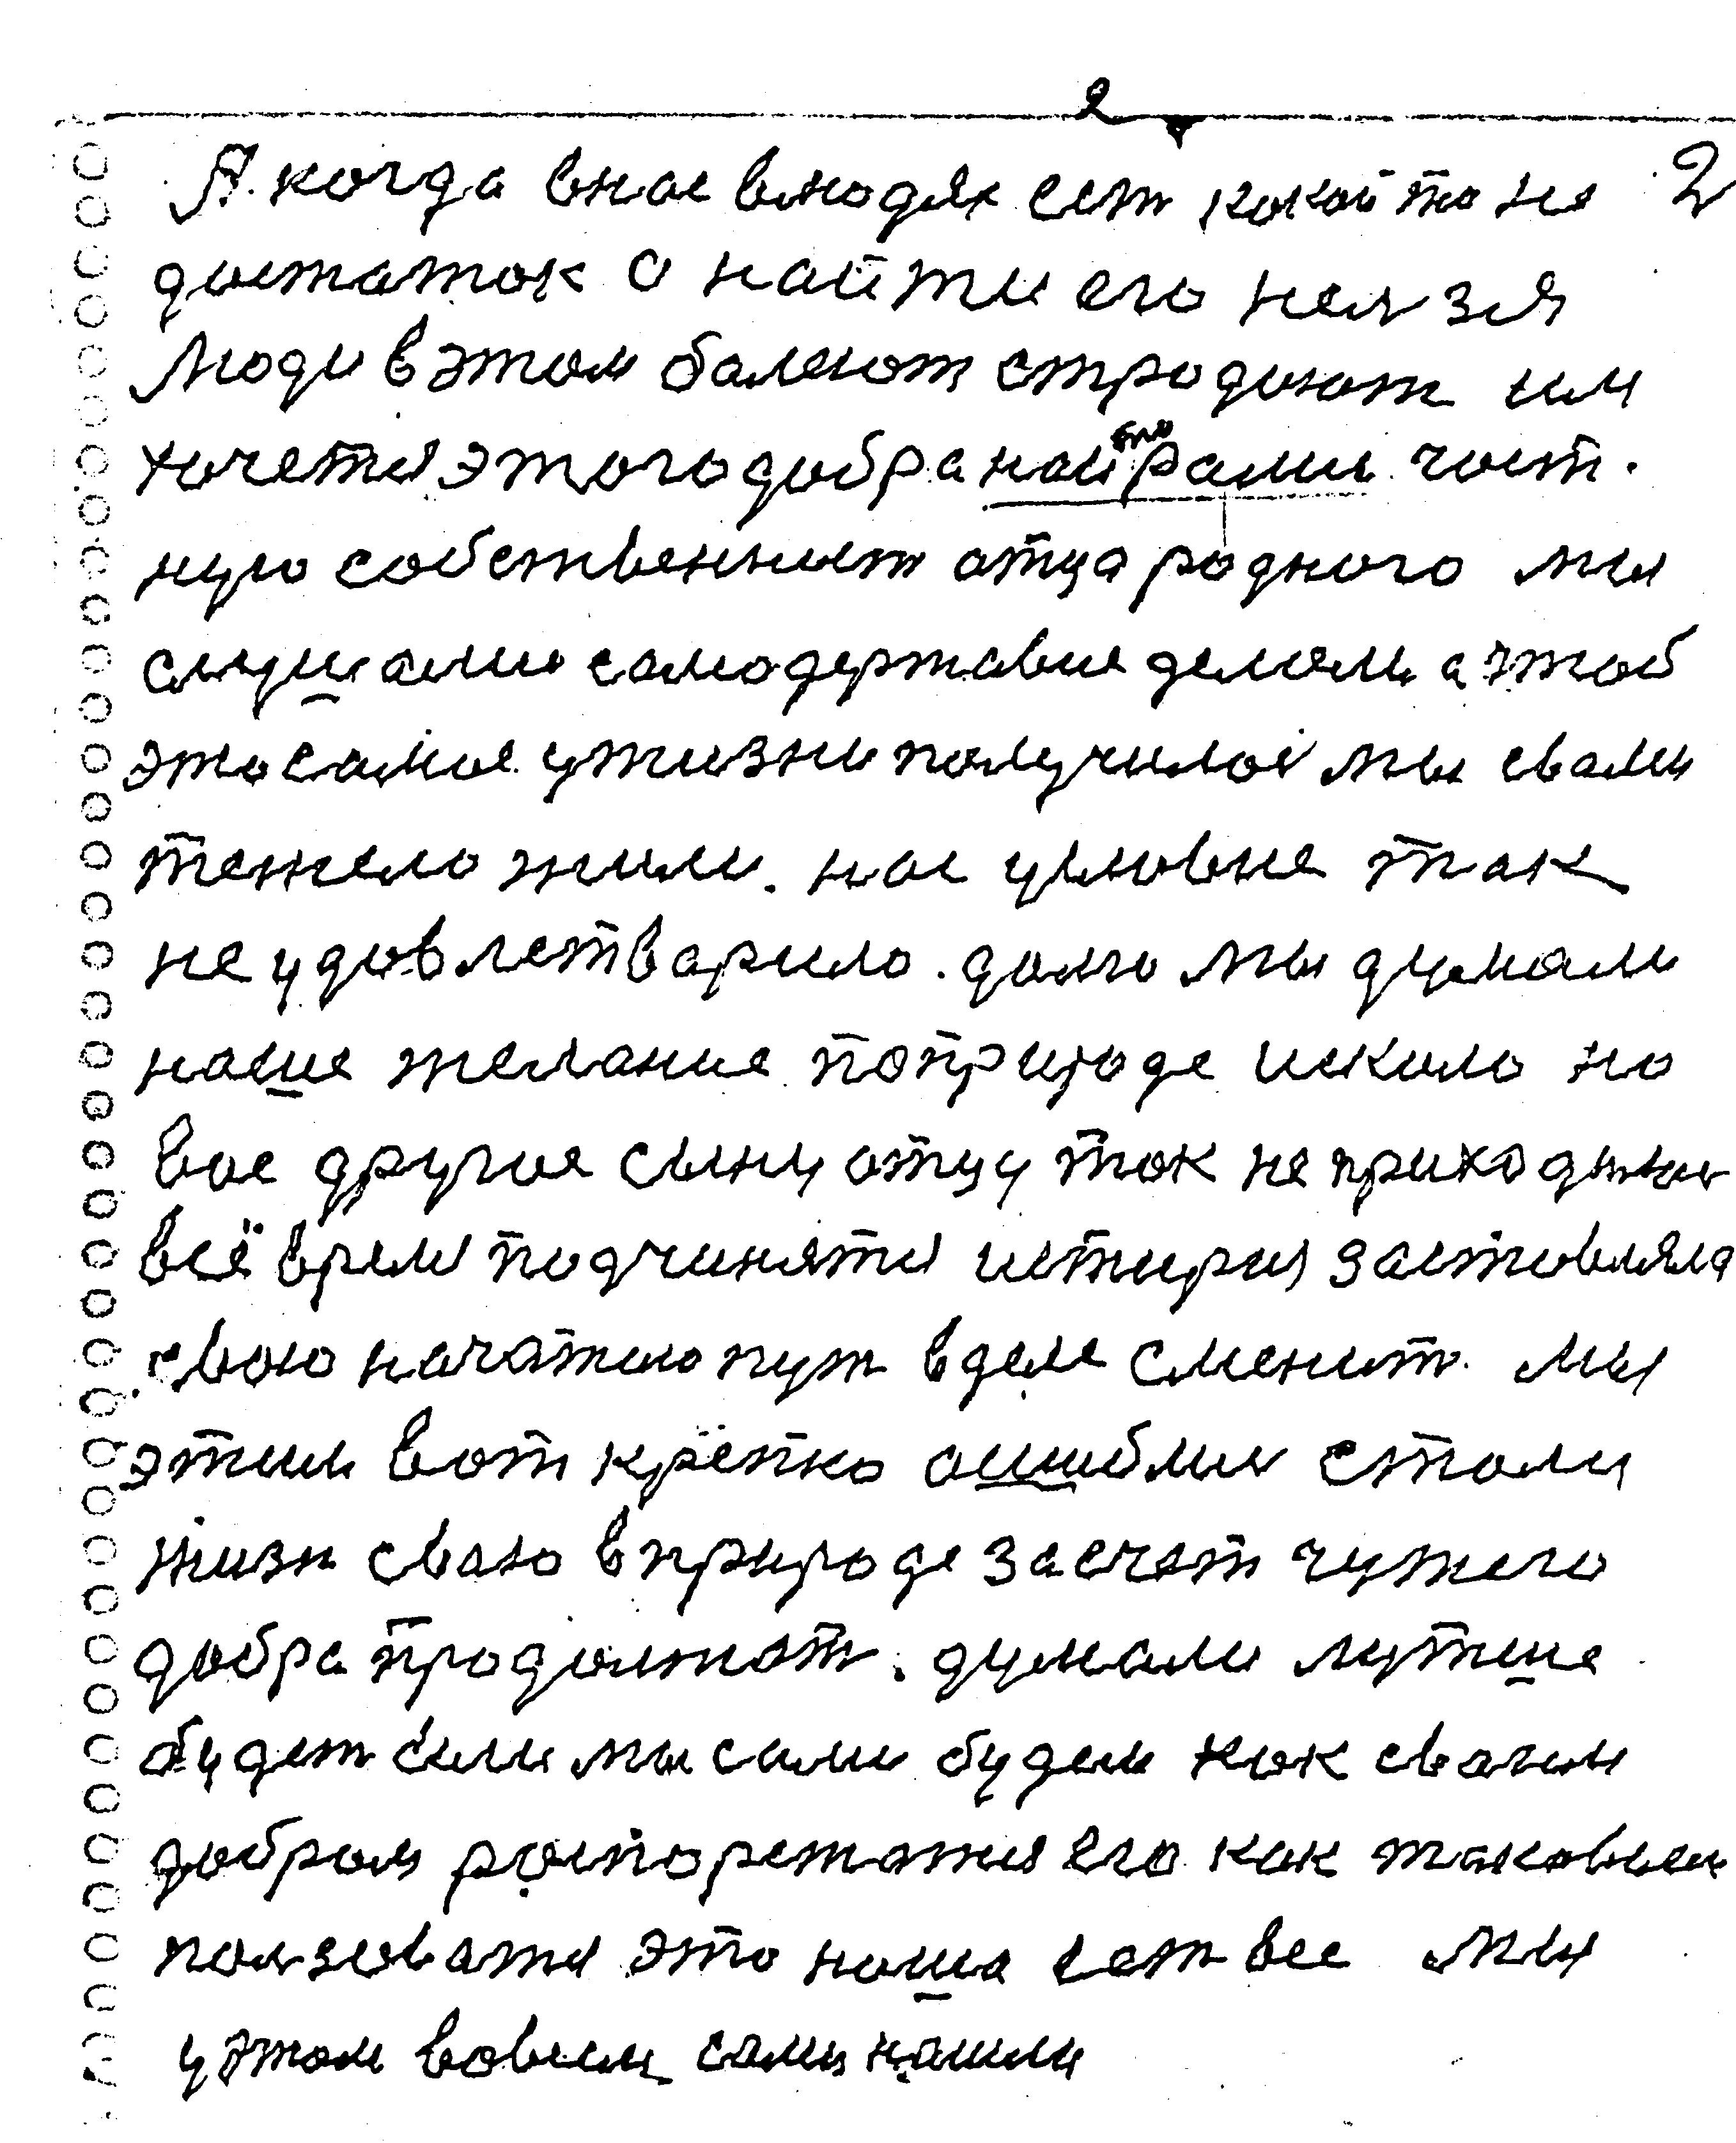 2
А когда внас влюдях ест какой то не 2
достаток а найти его нельзя
Люди в этом балеют страдают им
хочетя этого добра най
рами част.
ную собственност атца родного мы
слушали самодержавие делали а чтоб
это самое ужизни получилос мы свами
тежело жили. нас условие так
не удовлетварило. долго мы думали
наше желание поприроде искало но
вое другое сыну атцу так не приходилос
всё время подчинятя истирия заставляла
сваю начатаю пут вделе сменит. мы
этим вот крепко ашиблис стали
жизн сваю вприроде засчет чужего
добра продолжат. думали лутше
будет если мы сами будем как сваим
добрам распорежатися его как таковым
ползоватя это наша ест все мы
у этом вовсем сами нашли